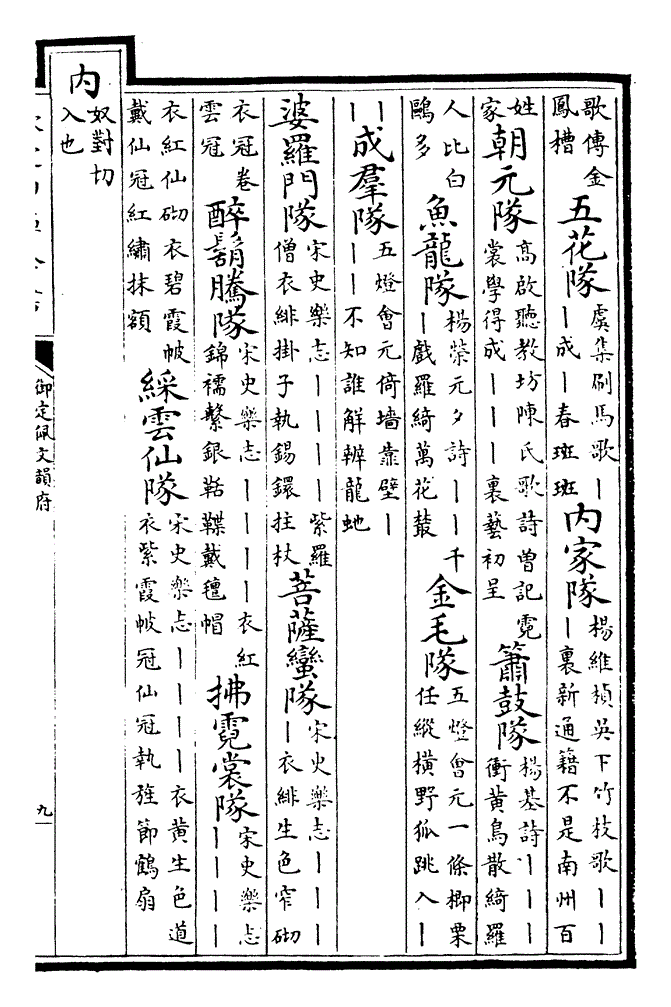 歌傳金鳳槽 五花隊 虞集刷馬歌｜｜成｜春斑斑 内家隊 楊維楨吳下竹枝歌｜｜｜裏新通籍不是南州百
姓家 朝元隊 髙啟聽教坊陳氏歌詩曽記霓裳學得成｜｜｜裏藝初呈 簫鼓隊 楊基詩｜｜｜衝黄鳥散綺羅
人比白鷗多 魚龍隊 楊榮元夕詩｜｜千｜戲羅綺萬花叢 金毛隊 五燈會元一條楖栗任縱横野狐跳入｜
｜｜ 成羣隊 五燈會元倚墻靠壁｜｜｜不知誰解辨龍虵
婆羅門隊 宋史樂志｜｜｜｜紫羅僧衣緋掛子執錫鐶拄杖 菩薩蠻隊 宋史樂志｜｜｜｜衣緋生色窄砌
衣冠卷雲冠 醉鬍騰隊 宋史樂志｜｜｜｜衣紅錦襦繫銀䩞鞢戴氊帽 拂霓裳隊 宋史樂志｜｜｜｜
衣紅仙砌衣碧霞帔戴仙冠紅繡抹額 綵雲仙隊 宋史樂志｜｜｜｜衣黄生色道衣紫霞帔冠仙冠執旌節鶴扇
内 奴對切入也
御定佩文韻府
九